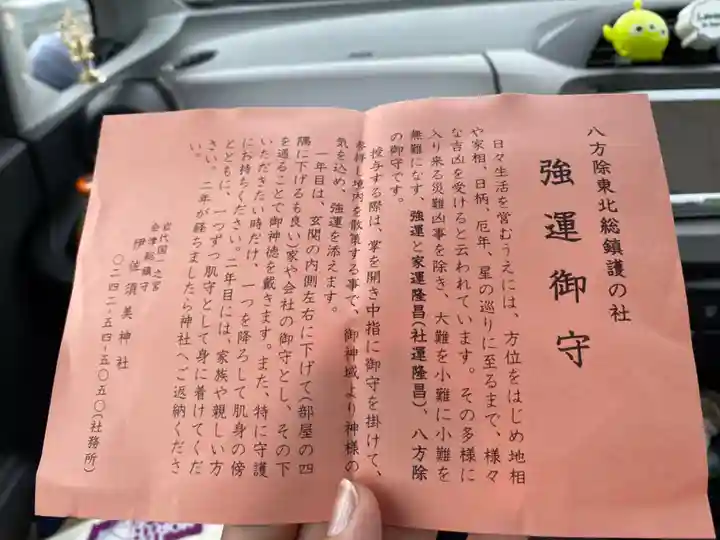 八方除東北総鎮護の社
強運御守
日々生活を営むうえには、方位をはじめ地相
や家相、日柄、厄年、星の巡りに至るまで、様々
な吉凶を受けると云われています。その多様に
入り来る災難凶事を除き、大難を小難に小難を
無難になす、強運と家運隆昌(社運隆昌)、八方除
の御守です。
授与する際は、掌を開き中指に御守を掛けて、
参拝し境内を散策する事で、御神域より神様の
気を込め、強運を添えます。
一年目は、玄関の内側左右に下げて(部屋の四
隅に下げるも良い)家や会社の御守とし、その下
を通ることで御神徳を戴きます。また、特に守護
いただきたい時だけ、一つを降ろして肌身の傍
にお持ちください。二年目には、家族や親しい方
とともに、一つずつ肌守として身に着けてくだ
さい。二年が経ちましたら神社へご返納くださ
い。
岩代国一之宮
会津総鎮守
伊佐須美神社
〇二四二-五四-五〇五〇(社務所)